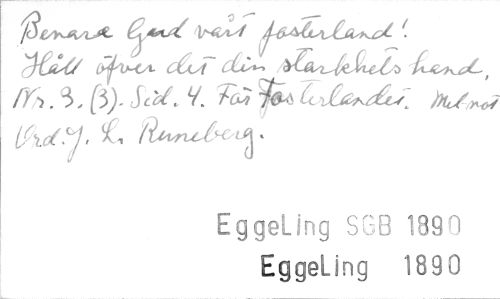 Bevara Gud vårt fosterland!
Håll öfver det din starkhets hand,
Nr. 3. (3). Sid. 4. För Fosterlandet. Mel-not
Ord. J. L. Runeberg.
EggeLing SGB 1890
EggeLing 1890